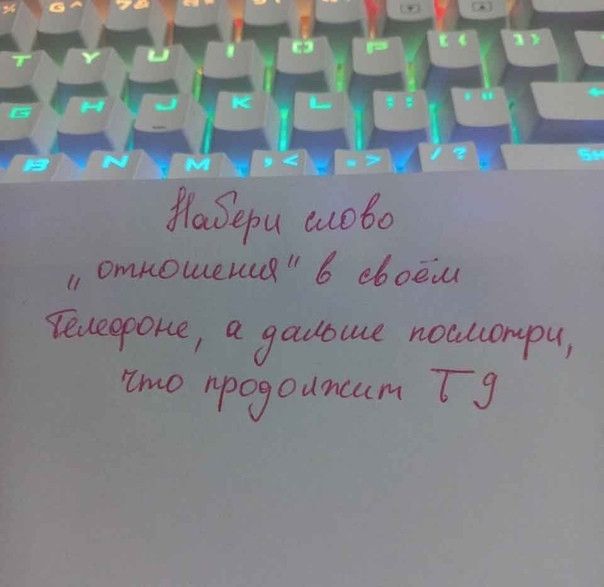 % 6^ 7& 8*
T Y U I O P [{ ]}
G H J K L ;: '"
B N M ,< .> /? Sh
Набери слово
„отношения" в своём
телефоне, а дальше посмотри,
что продолжит Т9